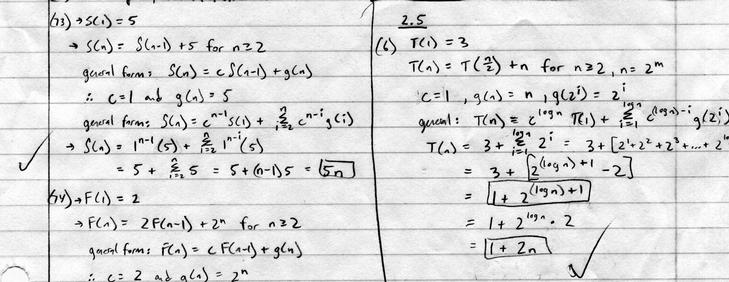 (73) → S(1) = 5
→ S(n) = S(n-1) + 5 for n≥2
general form: S(n) = c S(n-1) + g(n)
∴ c=1 and g(n) = 5
general form: S(n) = c^(n-1) S(1) + Σ_(i=2)^n c^(n-i) g(i)
→ S(n) = 1^(n-1) (5) + Σ_(i=2)^n 1^(n-i) (5)
= 5 + Σ_(i=2)^n 5 = 5 + (n-1)5 = 5n
(74) → F(1) = 2
→ F(n) = 2F(n-1) + 2^n for n≥2
general form: F(n) = c F(n-1) + g(n)
∴ c = 2 and g(n) = 2^n
2.5
(6) T(1) = 3
T(n) = T(n/2) + n for n≥2, n = 2^m
c=1, g(n) = n, g(2^i) = 2^i
general: T(n) = c^(log n) T(1) + Σ_(i=1)^(log n) c^((log n)-i) g(2^i)
T(n) = 3 + Σ_(i=1)^(log n) 2^i = 3 + [2^1 + 2^2 + 2^3 + ... + 2^
= 3 + [2^((log n)+1) - 2]
= 1 + 2^((log n)+1)
= 1 + 2^(log n) · 2
= 1 + 2n